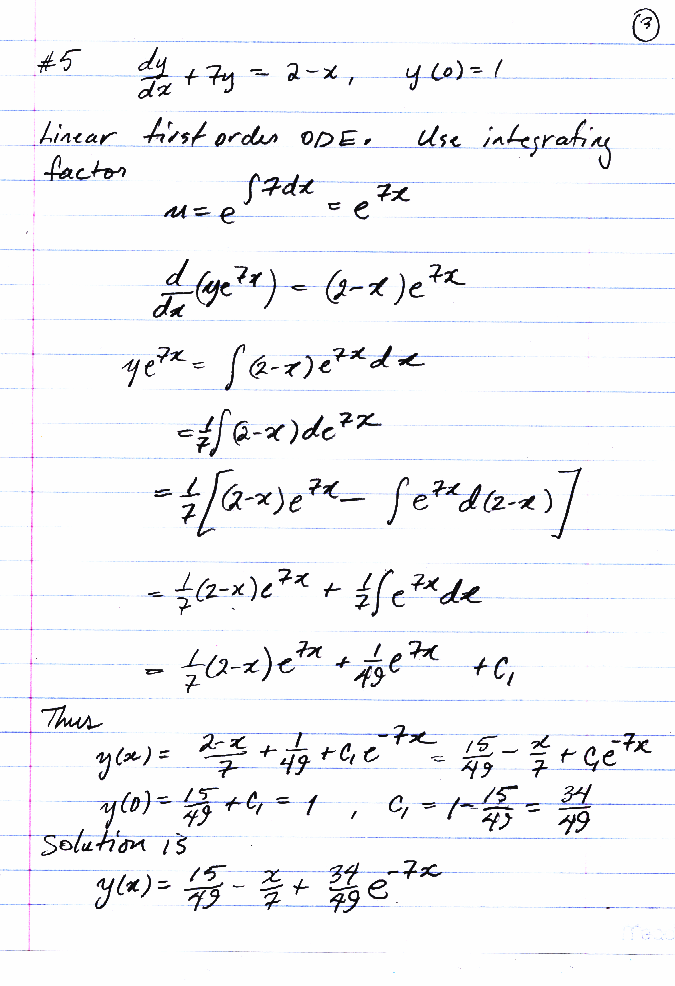 ③
#5 dy/dx + 7y = 2-x, y(0) = 1
Linear first order ODE. Use integrating
factor
u = e^{∫7dx} = e^{7x}
d/dx (ye^{7x}) = (2-x)e^{7x}
ye^{7x} = ∫(2-x)e^{7x}dx
= 1/7 ∫(2-x)de^{7x}
= 1/7 [(2-x)e^{7x} - ∫e^{7x}d(2-x)]
= 1/7 (2-x)e^{7x} + 1/7 ∫e^{7x}dx
= 1/7 (2-x)e^{7x} + 1/49 e^{7x} + C₁
Thus
y(x) = (2-x)/7 + 1/49 + C₁e^{-7x} = 15/49 - x/7 + C₁e^{-7x}
y(0) = 15/49 + C₁ = 1, C₁ = 1 - 15/49 = 34/49
Solution is
y(x) = 15/49 - x/7 + 34/49 e^{-7x}